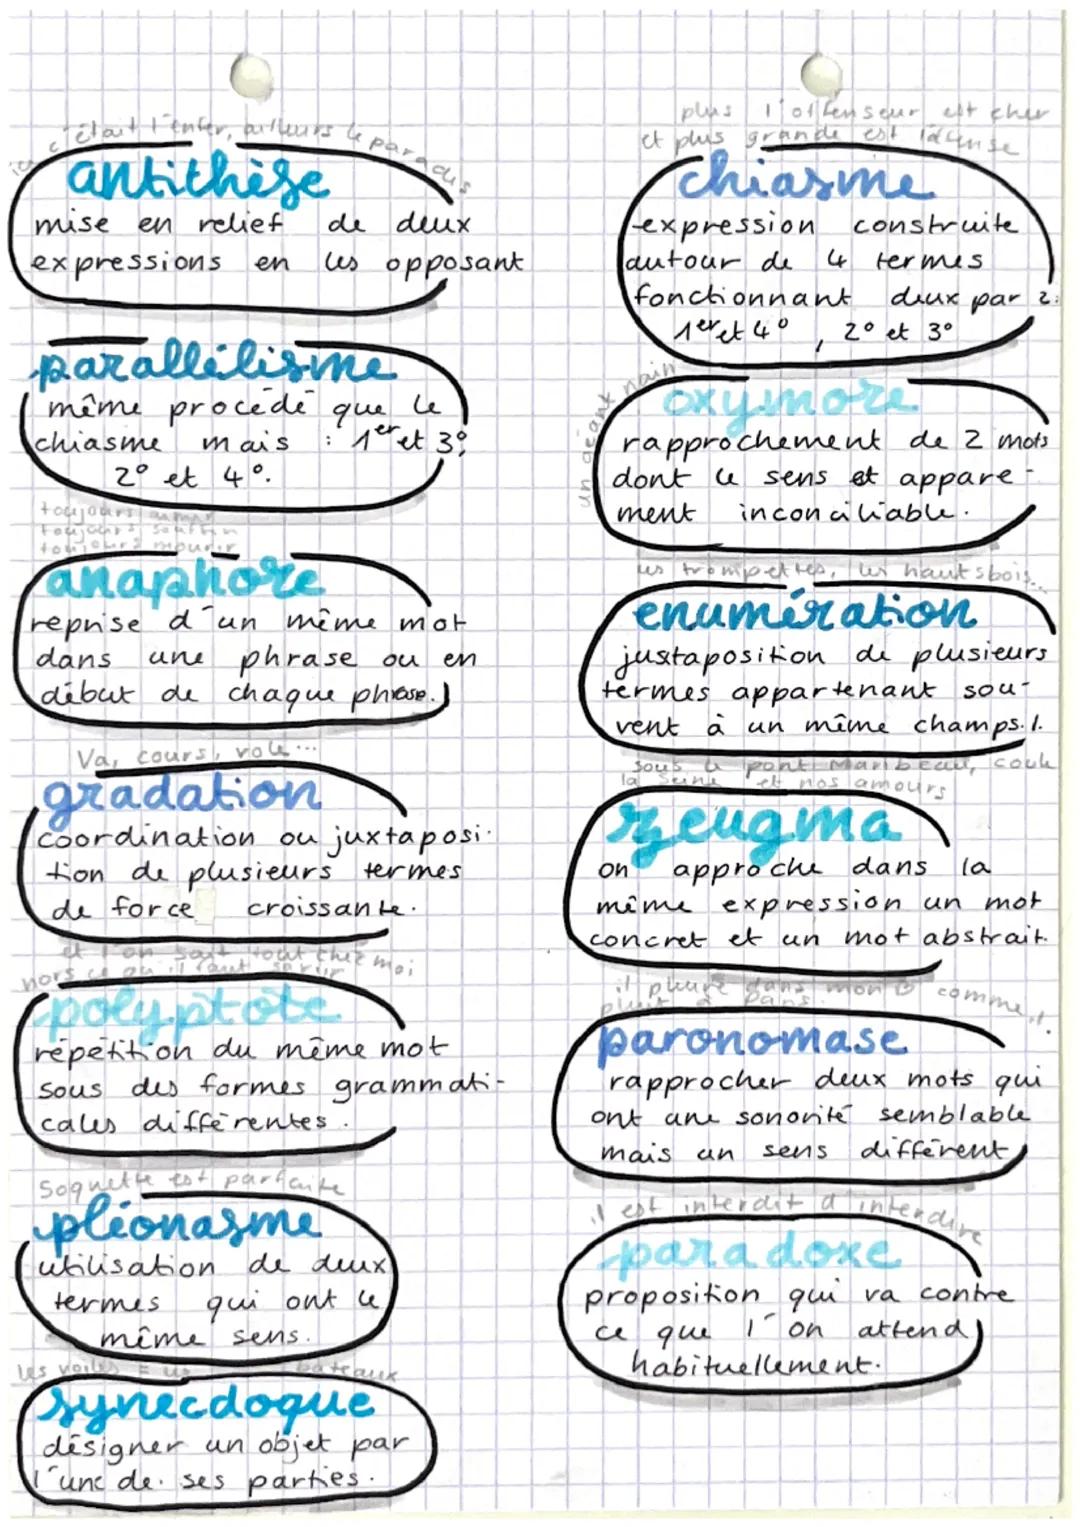 ici c'était l'enfer, ailleurs le paradis
antithèse
mise en relief de deux
expressions en les opposant
parallélisme
même procédé que le
chiasme mais : 1er et 3°,
2° et 4°.
toujours aimer
toujours souffrir
toujours mourir
anaphore
reprise d'un même mot
dans une phrase ou en
début de chaque phrase.
Va, cours, vole...
gradation
coordination ou juxtaposi-
tion de plusieurs termes
de force croissante.
et l'on sait tout chez moi
hors ce qu'il faut savoir
polyptote
répétition du même mot
sous des formes grammati-
cales différentes.
Soquette est parfaite
pléonasme
utilisation de deux
termes qui ont le
même sens.
les voiles = les bateaux
synecdoque
désigner un objet par
l'une de ses parties.
plus l'offenseur est cher
et plus grande est l'offense
chiasme
expression construite
autour de 4 termes
fonctionnant deux par 2:
1er et 4°, 2° et 3°
un géant nain
oxymore
rapprochement de 2 mots
dont le sens et appare-
ment inconciliable.
les trompettes, les hautsbois...
enumération
justaposition de plusieurs
termes appartenant sou-
vent à un même champs.l.
sous le pont Maribeau, coule
la Seine et nos amours
zeugma
on approche dans la
même expression un mot
concret et un mot abstrait.
il pleure dans mon comme il
pleut à Paris.
paronomase
rapprocher deux mots qui
ont une sonorité semblable
mais un sens différent
il est interdit d'interdire
paradoxe
proposition qui va contre
ce que l'on attend
habituellement.